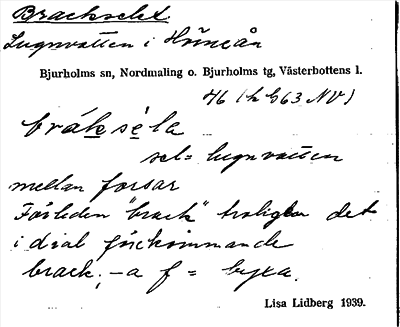 Brackselet
Lugnvatten i Hörneån
Bjurholms sn, Nordmaling o. Bjurholms tg, Västerbottens l.
46 (h 63 NV)
bráksèla
sel = lugnvatten
mellan forsar
Förleden "brack" troligen det
i dial förekommande
brack, -a f = byxa.
Lisa Lidberg 1939.